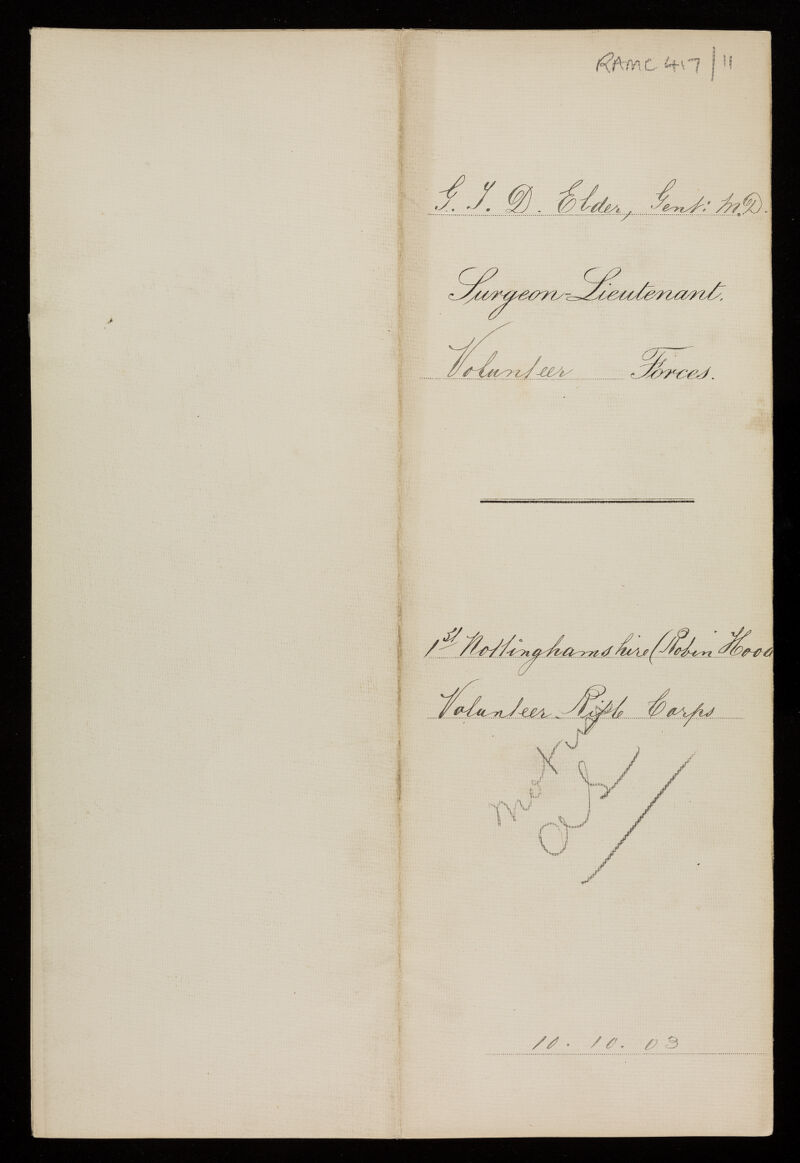 RAMC 417/11
G. T. D. Elder, Gent: M.D.
Surgeon-Lieutenant.
Volunteer Forces.
1st Nottinghamshire (Robin Hood
Volunteer Rifle Corps
10.10.03